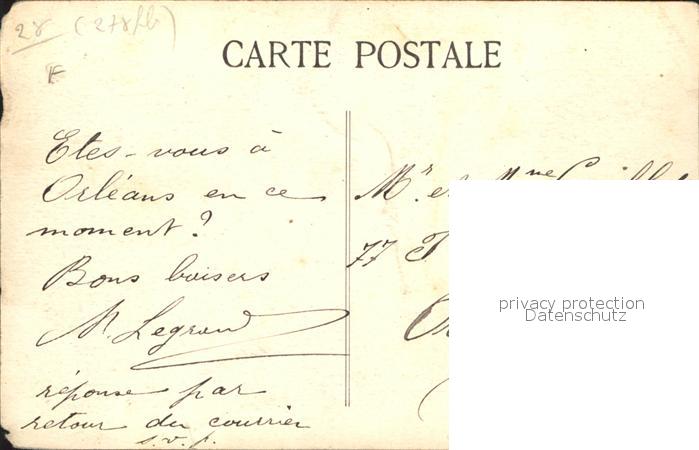 28 (278fb)
CARTE POSTALE
Etes-vous à
Orléans en ce
moment?
Bons baisers
M. Legrand
réponse par
retour du courrier
s.v.p.
Mr. et Mme
77
privacy protection
Datenschutz